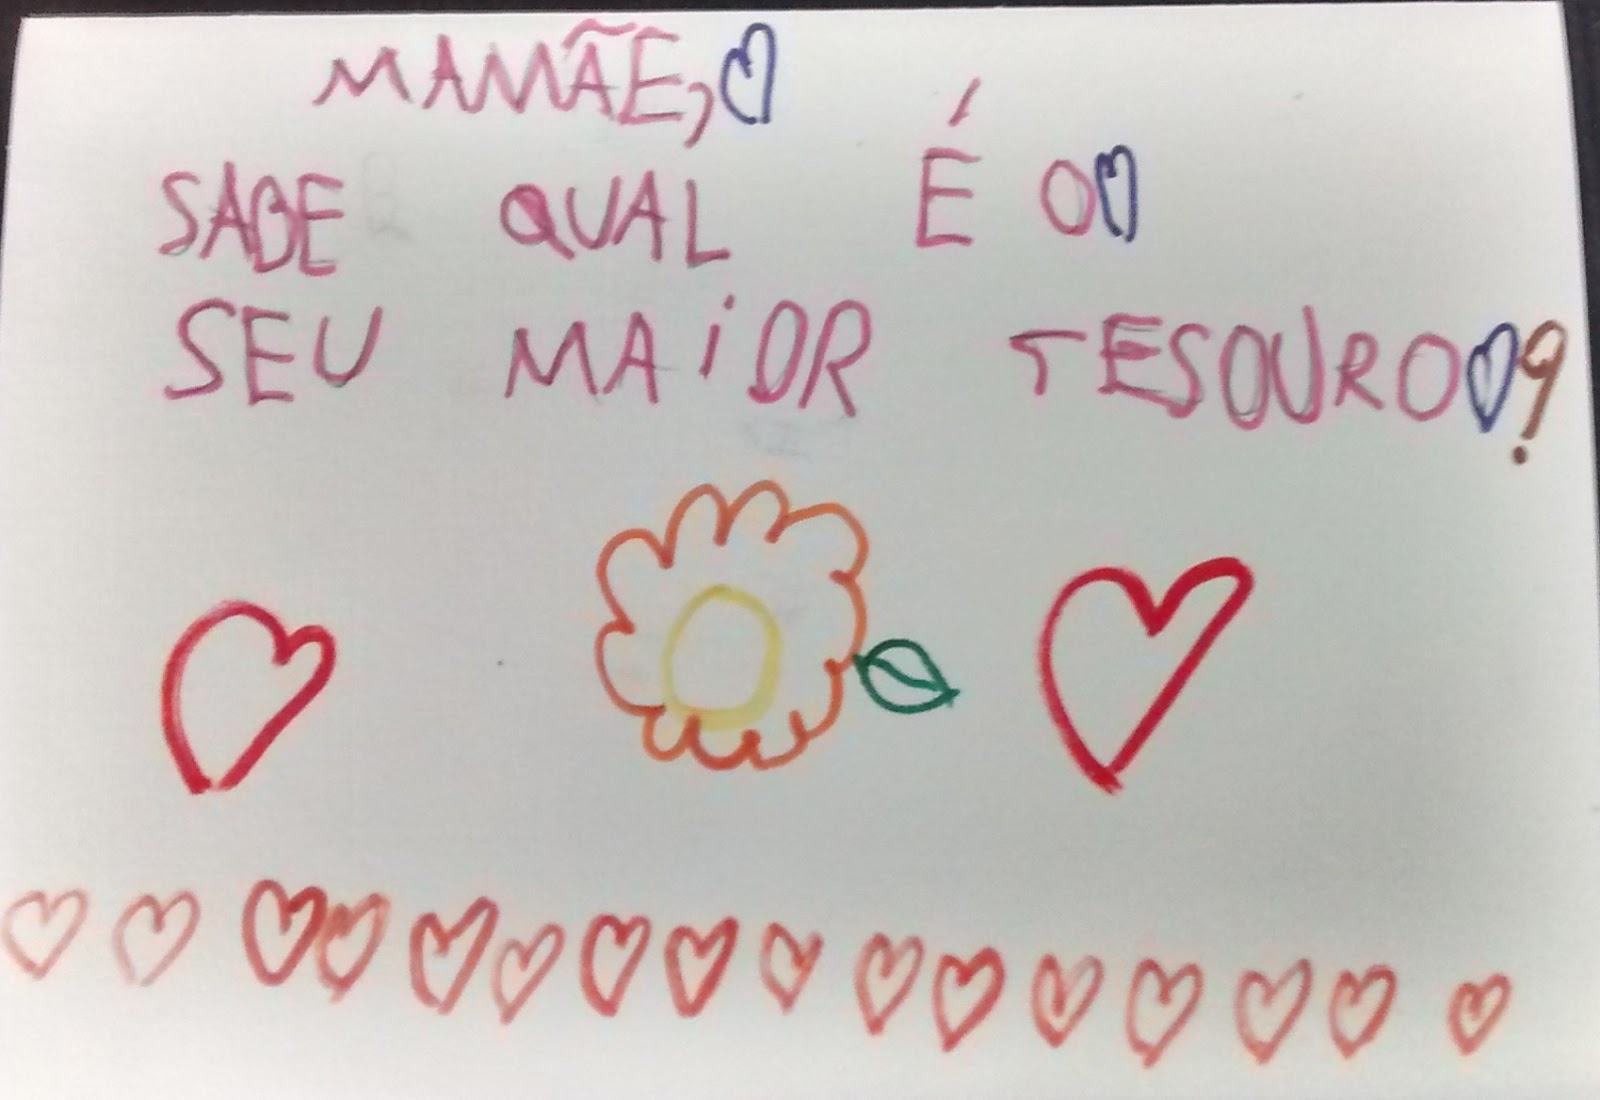 MAMÃE,
SABE QUAL É O
SEU MAiOR TESOURO?